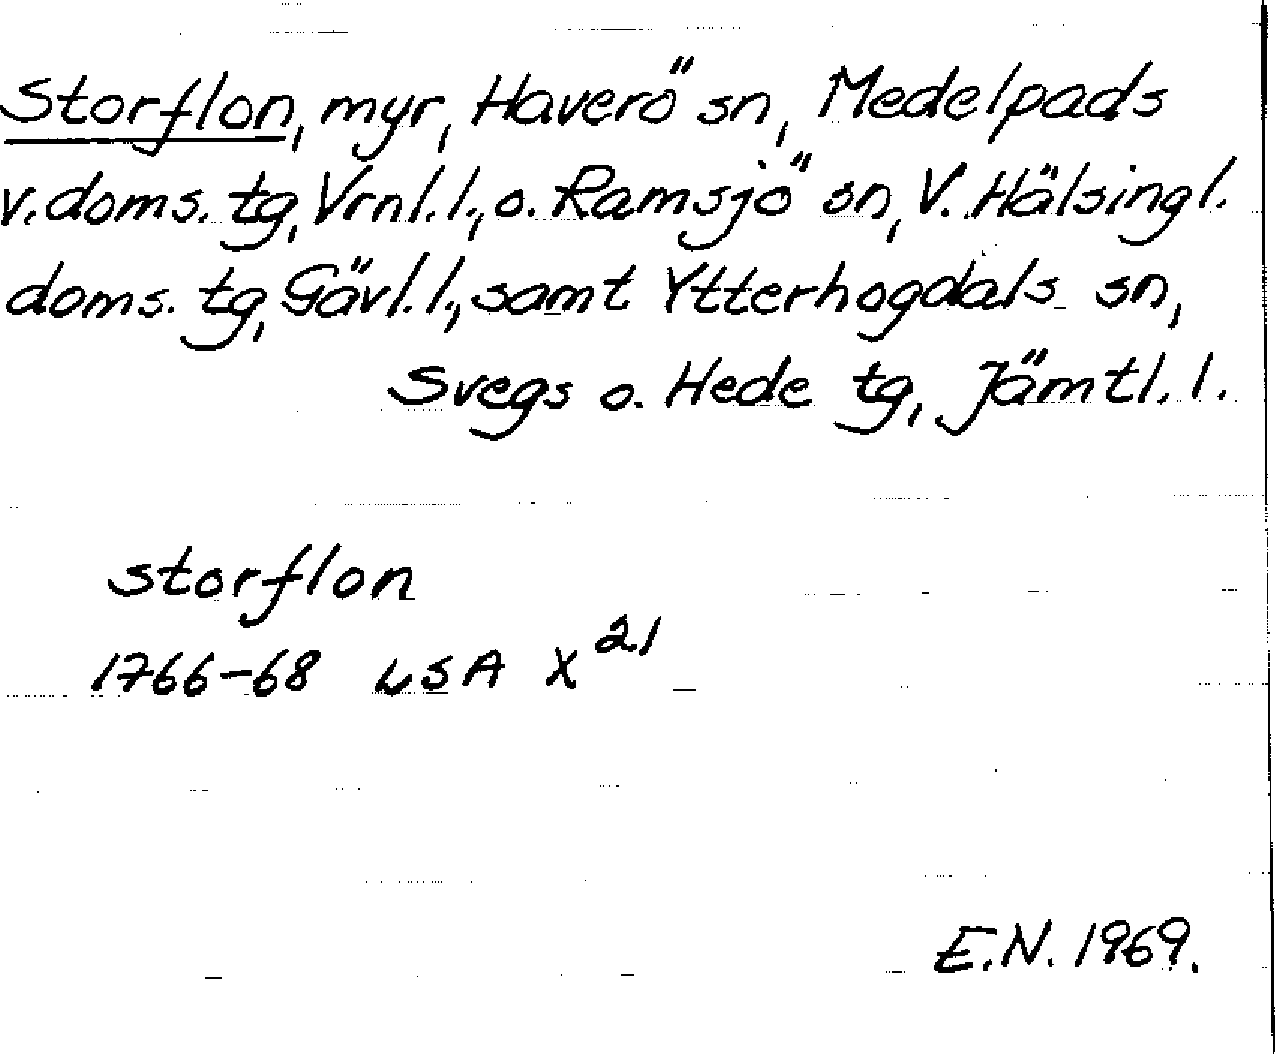 Storflon, myr, Haverö sn, Medelpads
v. doms. tg, Vrnl. l., o. Ramsjö sn, V. Hälsingl.
doms. tg, Gävl. l., samt Ytterhogdals sn,
Svegs o. Hede tg, Jämtl. l.
storflon
1766-68 LSA X 21
E.N. 1969.